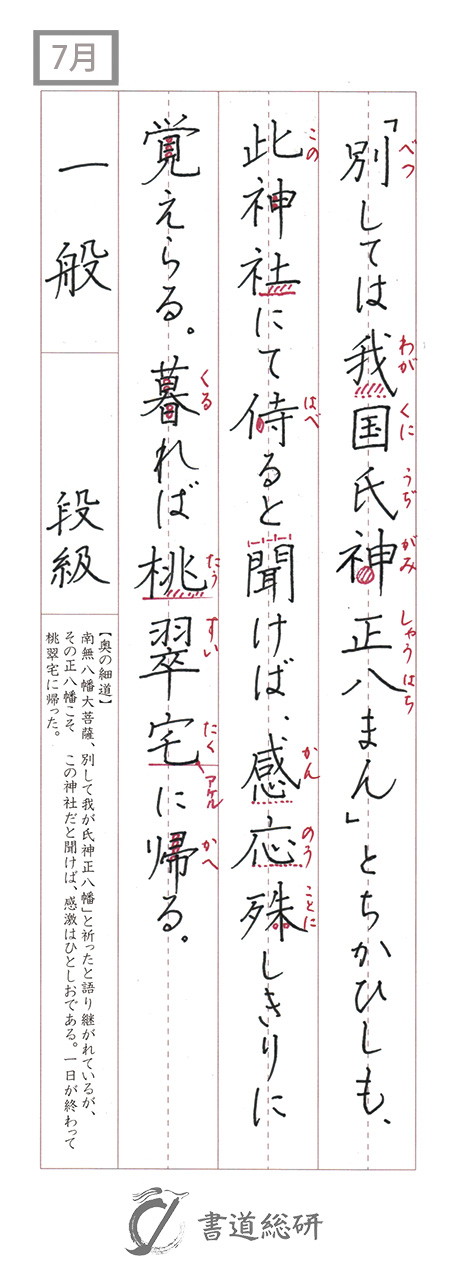 7月
「別しては我国氏神正八まん」とちかひしも、
べつ わが くに うぢ がみ しやう はち
此神社にて侍ると聞けば、感応殊しきりに
この はべ かん のう ことに
覚えらる。暮れば桃翠宅に帰る。
くる たう すい たく アケル かへ
一般 段級
【奥の細道】
南無八幡大菩薩、別して我が氏神正八幡」と祈ったと語り継がれているが、
その正八幡こそ この神社だと聞けば、感激はひとしおである。一日が終わって
桃翠宅に帰った。
書道総研